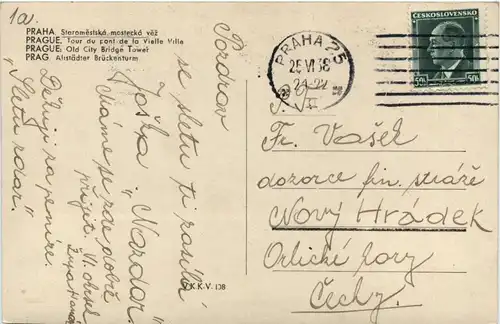 1a.
PRAHA. Staroměstská mostecká věž
PRAGUE. Tour du pont de la Vielle Ville
PRAGUE. Old City Bridge Tower
PRAG. Altstädter Brückenturm
Pozdrav
se sletu ti posílá
Joška. "Nazdar."
Máme se zde dobře
přijeti
Děkuji za peníze.
"Sletu zdar."
K.K.V. 138
PRAHA 25
25 VI 38
ČESKOSLOVENSKO
50h 50h
Fr. Vašek
dozorce fin. stráže
Nový Hrádek
Orlické hory
Čechy.